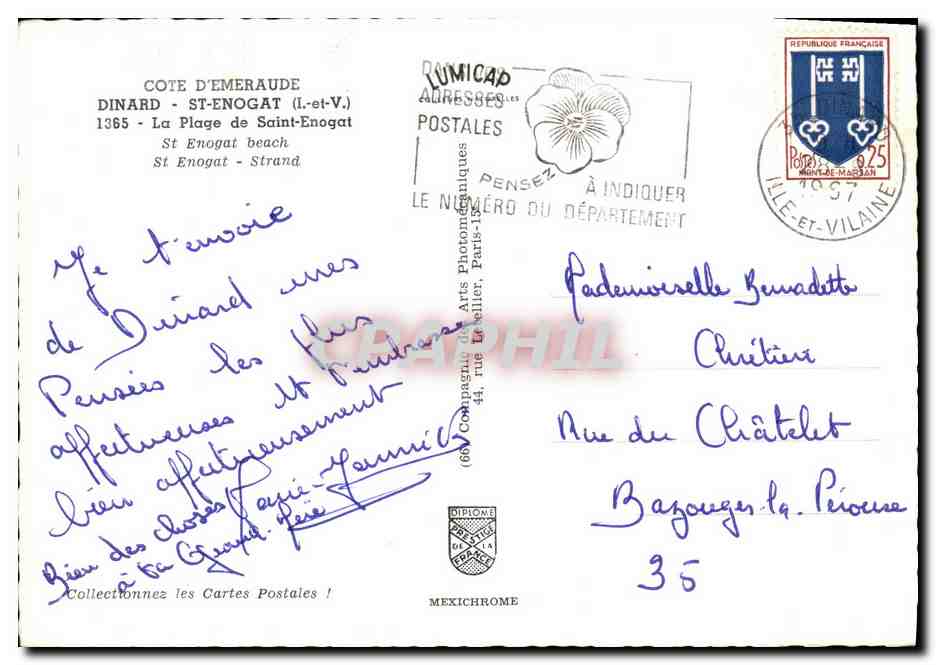 COTE D'EMERAUDE
DINARD - ST-ENOGAT (I.-et-V.)
1365 - La Plage de Saint-Enogat
St Enogat beach
St Enogat - Strand
Je t'envoie
de Dinard mes
Pensées les plus
affectueuses et t'embrasse
bien affectueusement
Marie-Yannick
Bien des choses
à ta Grand-Mère
Collectionnez les Cartes Postales !
LUMICAP
DANS LES
ADRESSES
POSTALES
PENSEZ
À INDIQUER
LE NUMÉRO DU DÉPARTEMENT
(66) Compagnie des Arts Photomécaniques
44, rue Letellier, Paris-15
DIPLOME
PRESTIGE
DE LA
FRANCE
MEXICHROME
REPUBLIQUE FRANÇAISE
POSTES 0,25
MONT-DE-MARSAN
DINARD
1967
ILLE-ET-VILAINE
Mademoiselle Bernadette
Chrétien
Rue du Châtelet
Bazouges-la-Pérouse
35
CPAPHIL